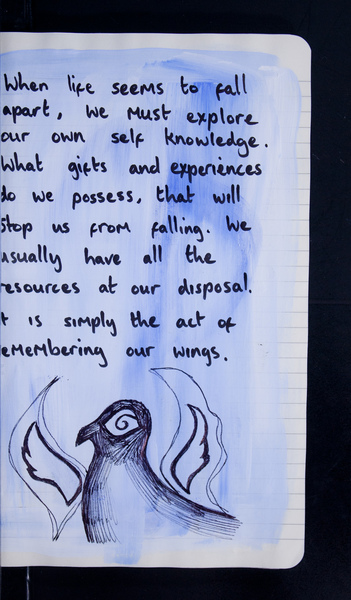 When life seems to fall
apart, we must explore
our own self knowledge.
What gifts and experiences
do we possess, that will
stop us from falling. We
usually have all the
resources at our disposal.
t is simply the act of
emembering our wings.